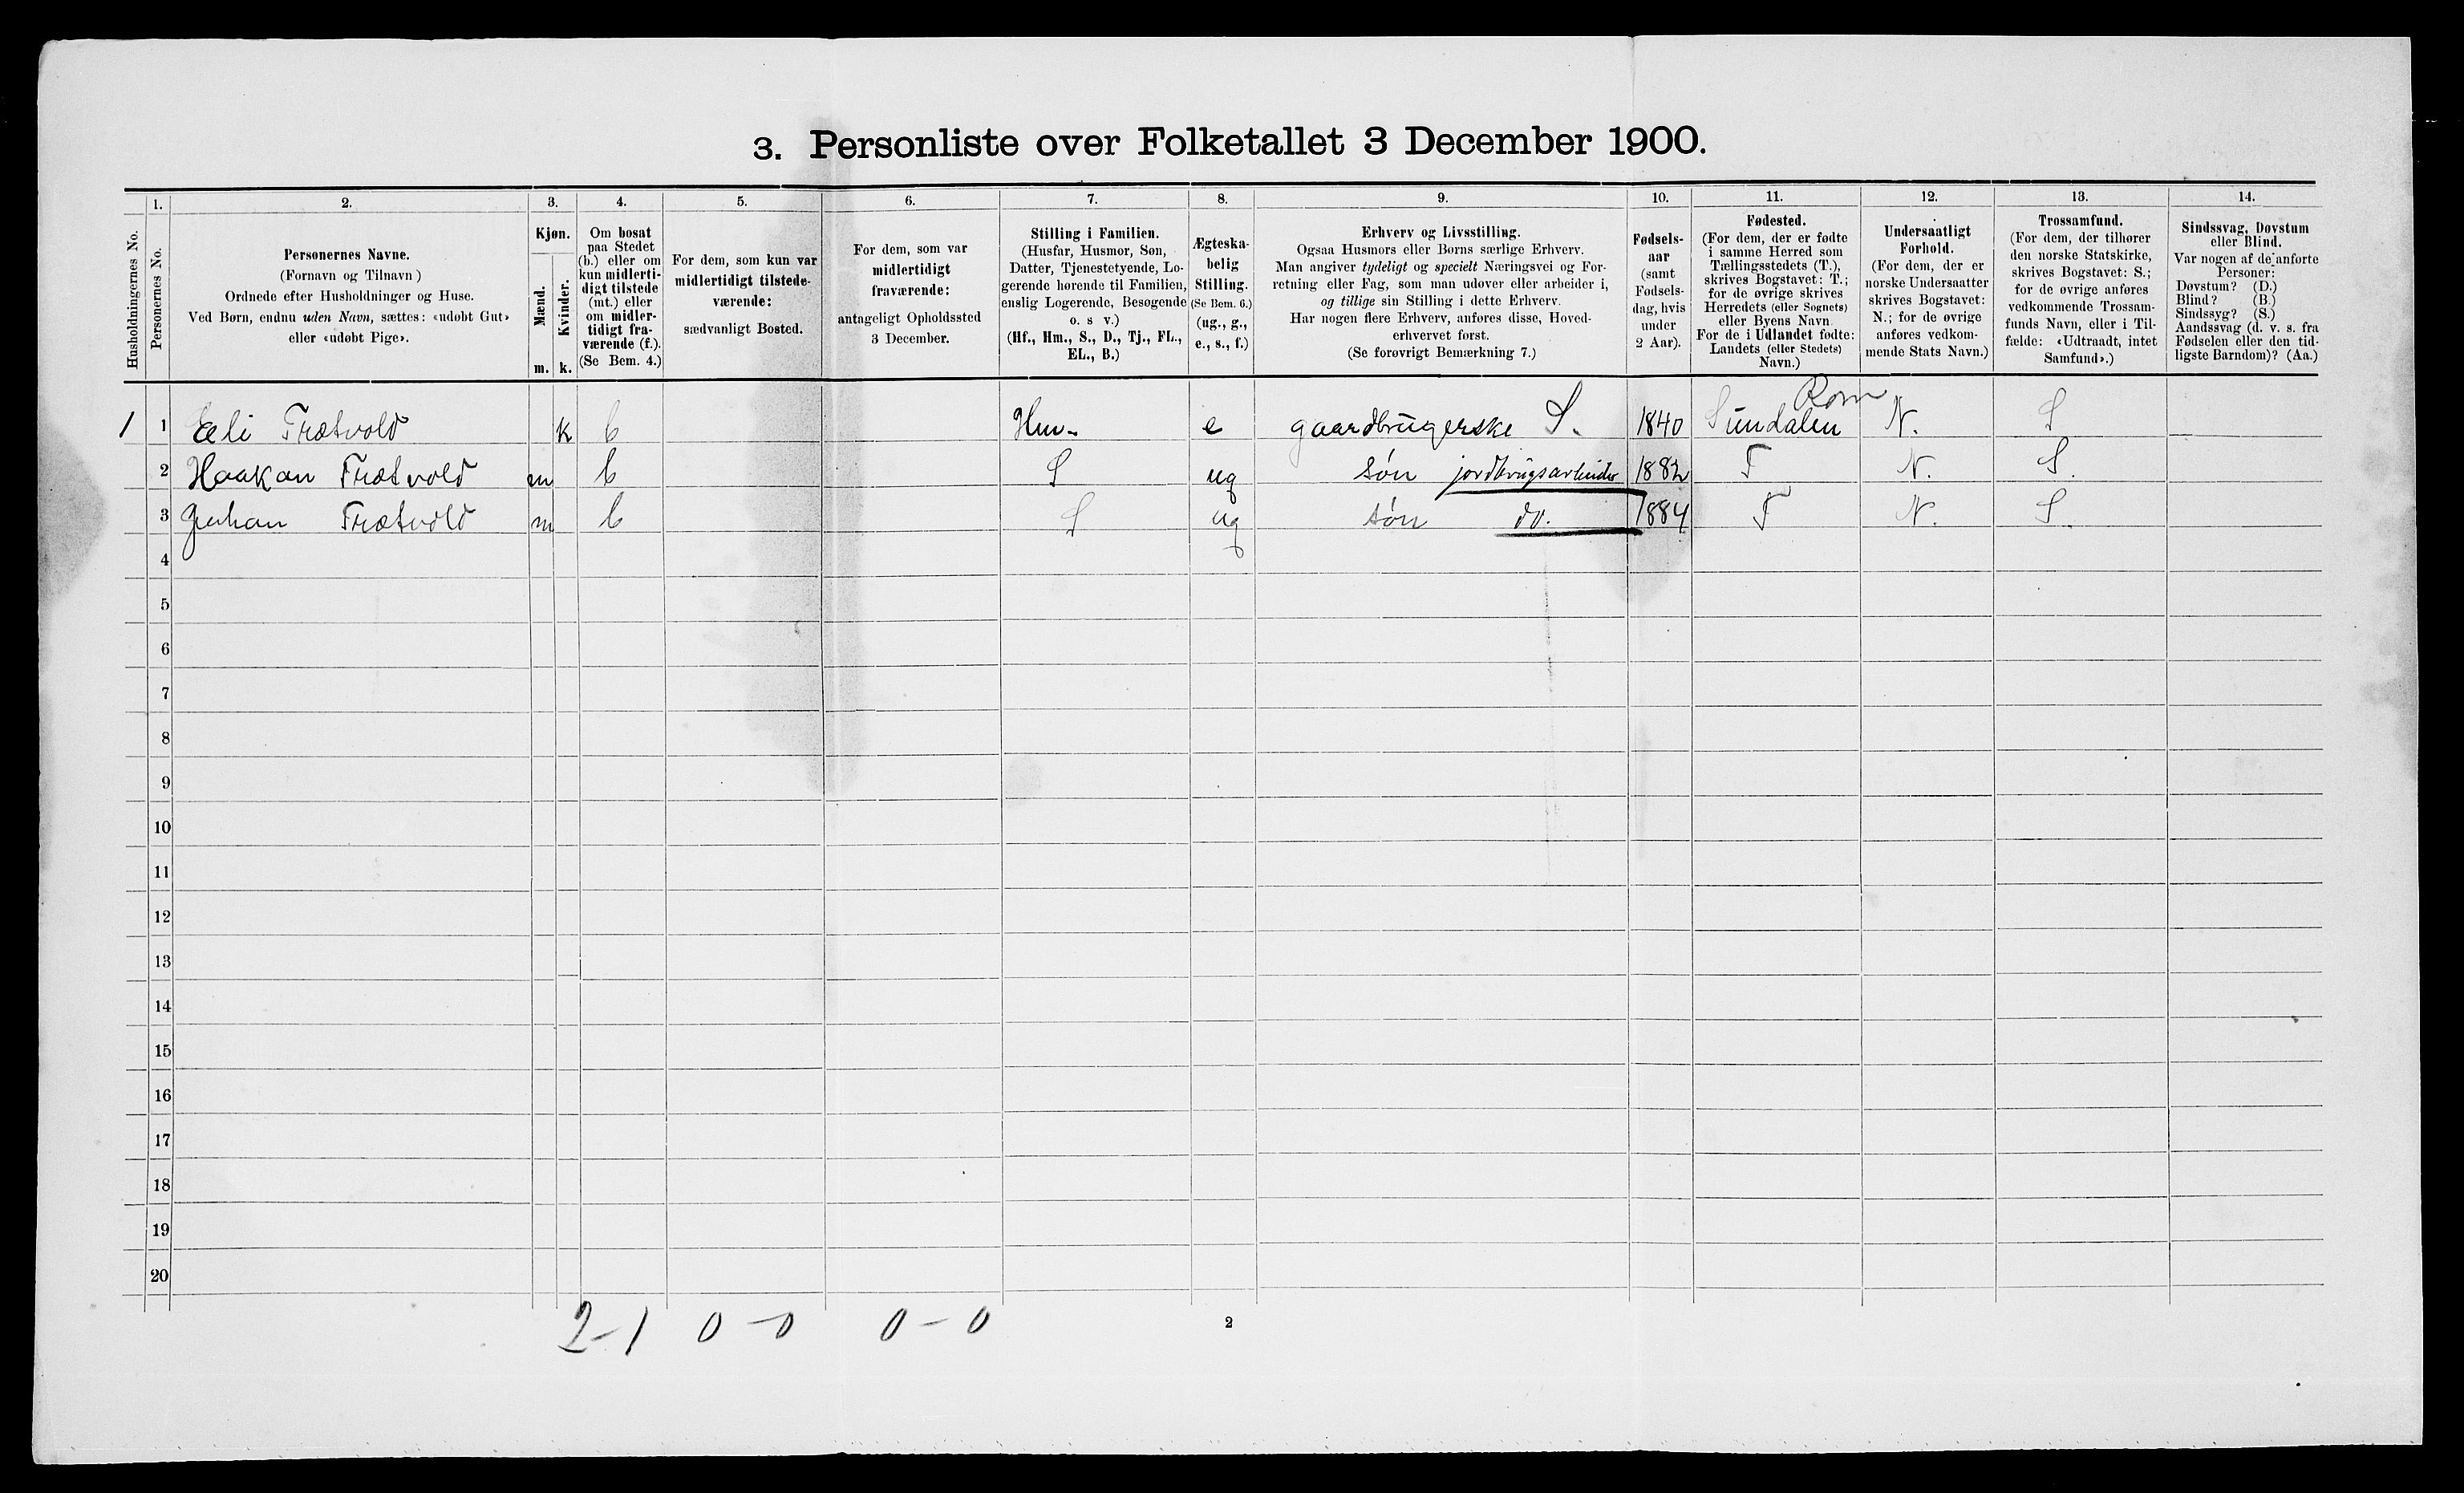 3. Personliste over Folketallet 3 December 1900.
Husholdningernes No.
1. Personernes No.
2. Personernes Navne.
(Fornavn og Tilnavn)
Ordnede efter Husholdninger og Huse.
Ved Børn, endnu uden Navn, sættes: «udøbt Gut»
eller «udøbt Pige».
3. Kjøn.
Mænd. m.
Kvinder. k.
4. Om bosat
paa Stedet
(b.) eller om
kun midlerti-
digt tilstede
(mt.) eller
om midler-
tidigt fra-
værende (f.).
(Se Bem. 4.)
5. For dem, som kun var
midlertidigt tilstede-
værende:
sædvanligt Bosted.
6. For dem, som var
midlertidigt
fraværende:
antageligt Opholdssted
3 December.
7. Stilling i Familien.
(Husfar, Husmor, Søn,
Datter, Tjenestetyende, Lo-
gerende hørende til Familien,
enslig Logerende, Besøgende
o. s v.)
(Hf., Hm., S., D., Tj., FL.,
EL., B.)
8. Ægteska-
belig
Stilling.
(Se Bem. 6.)
(ug., g.,
e., s., f.)
9. Erhverv og Livsstilling.
Ogsaa Husmors eller Børns særlige Erhverv.
Man angiver tydeligt og specielt Næringsvei og For-
retning eller Fag, som man udøver eller arbeider i,
og tillige sin Stilling i dette Erhverv.
Har nogen flere Erhverv, anføres disse, Hoved-
erhvervet først.
(Se forøvrigt Bemærkning 7.)
10. Fødsels-
aar
(samt
Fødsels-
dag, hvis
under
2 Aar).
11. Fødested.
(For dem, der er fødte
i samme Herred som
Tællingsstedets (T.),
skrives Bogstavet: T.;
for de øvrige skrives
Herredets (eller Sognets)
eller Byens Navn
For de i Udlandet fødte:
Landets (eller Stedets)
Navn.)
12. Undersaatligt
Forhold.
(For dem, der er
norske Undersaatter
skrives Bogstavet:
N.; for de øvrige
anføres vedkom-
mende Stats Navn.)
13. Trossamfund.
(For dem, der tilhører
den norske Statskirke,
skrives Bogstavet: S.;
for de øvrige anføres
vedkommende Trossam-
funds Navn, eller i Til-
fælde: «Udtraadt, intet
Samfund».)
14. Sindssvag, Døvstum
eller Blind.
Var nogen af de anførte
Personer:
Døvstum? (D.)
Blind? (B.)
Sindssyg? (S.)
Aandssvag (d. v. s. fra
Fødselen eller den tid-
ligste Barndom)? (Aa.)
Rom
1 1 Eli Trætvold k b Hm. e gaardbrugerske S. 1840 Sundalen N. S
2 Haakon Trætvold m b S ug søn jordbrugsarbeider 1882 T N. S.
3 Johan Trætvold m b S ug søn do. 1884 T N. S.
4
5
6
7
8
9
10
11
12
13
14
15
16
17
18
19
20
2-1 0-0 0-0
2